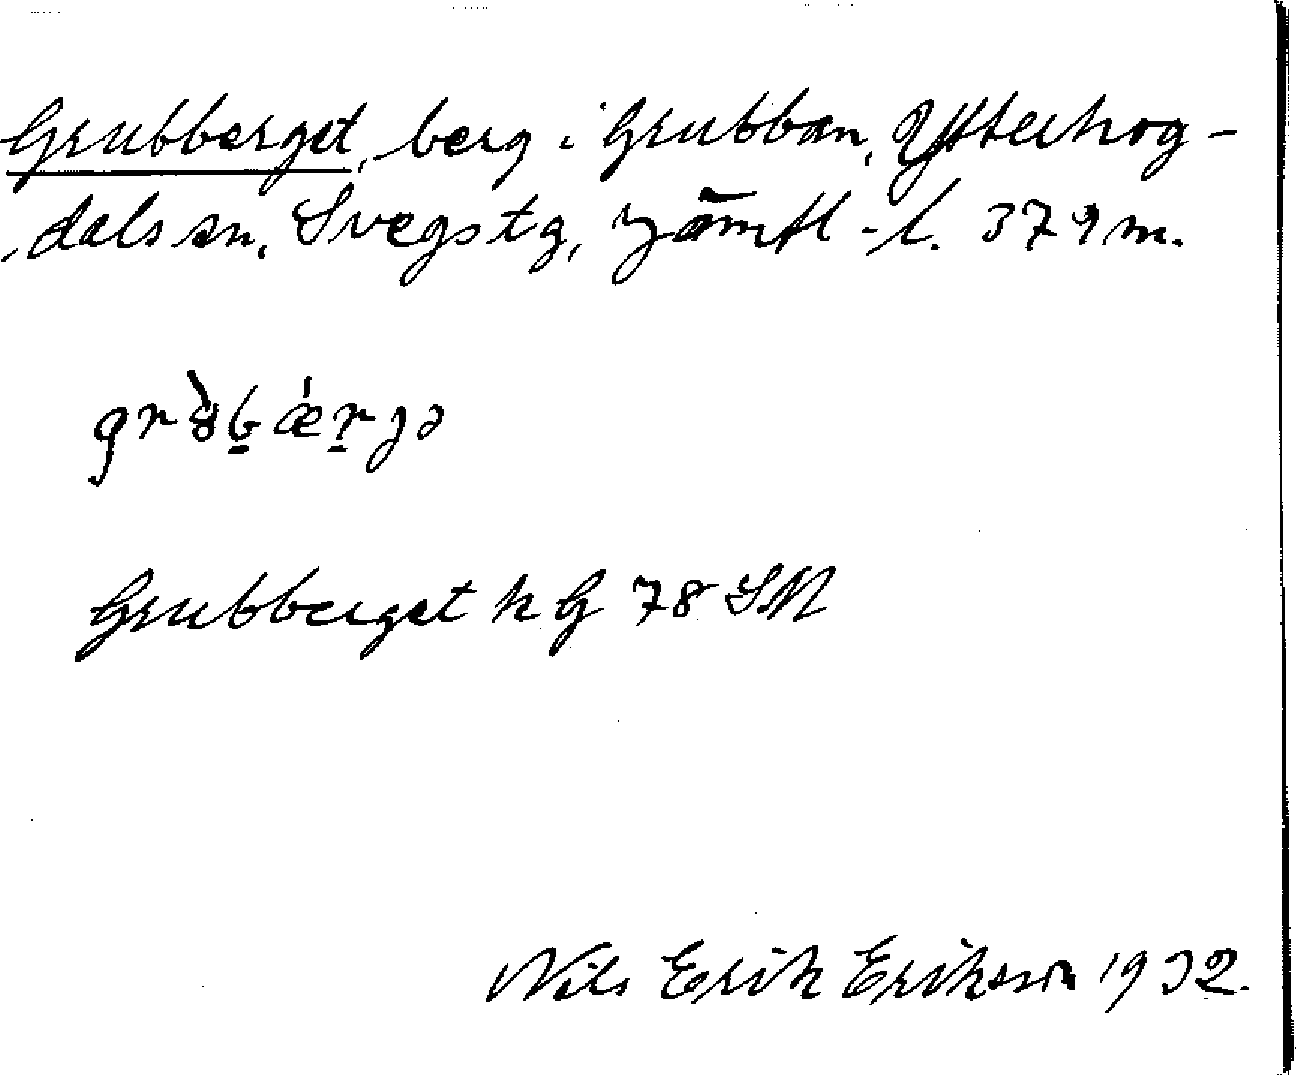 Grubberget, berg i Grubban, Ytterhog-
dals sn, Svegs tg, Jämtl-l. 379 m.
grȣ̀b̠ǽr̠ȷə
Grubberget k G 78 SM
Nils Erik Eriksson 1932.